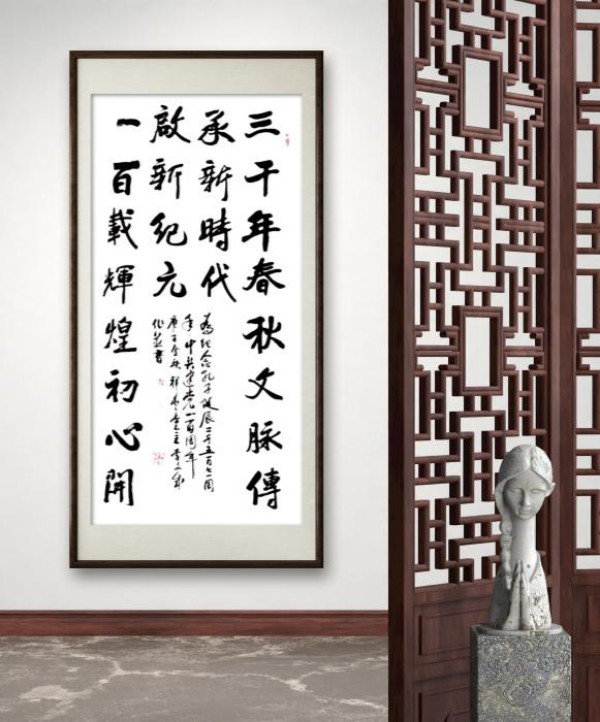 三千年春秋文脈傳
承新時代
啟新紀元
一百載輝煌初心開
為紀念孔子誕辰二千五百七一周
年中共建党一百周年
庚子金秋
作並書